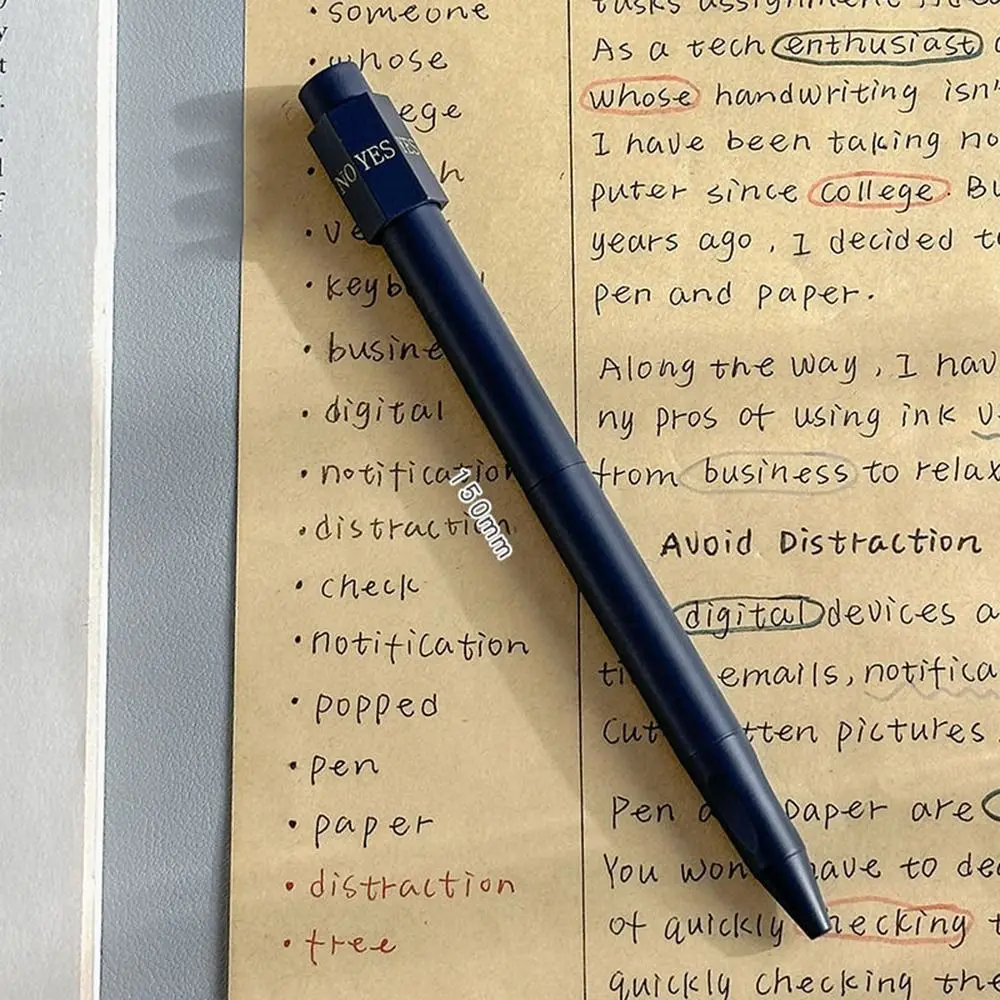 · someone
· whose
ege
h
· ve
· keyb
· busine
· digital
· notification
· distraction
· check
· notification
· popped
· pen
· paper
· distraction
· tree
NO YES YES
150mm
As a tech enthusiast
whose handwriting isn'
I have been taking no
puter since college. Bu
years ago, I decided to
pen and paper.
Along the way, I hav
ny pros of using ink v
from business to relax
Avoid Distraction
digital devices a
ti emails, notifica
Cut tten pictures
Pen a paper are
You won have to de
of quickly checking t
quickly checking the